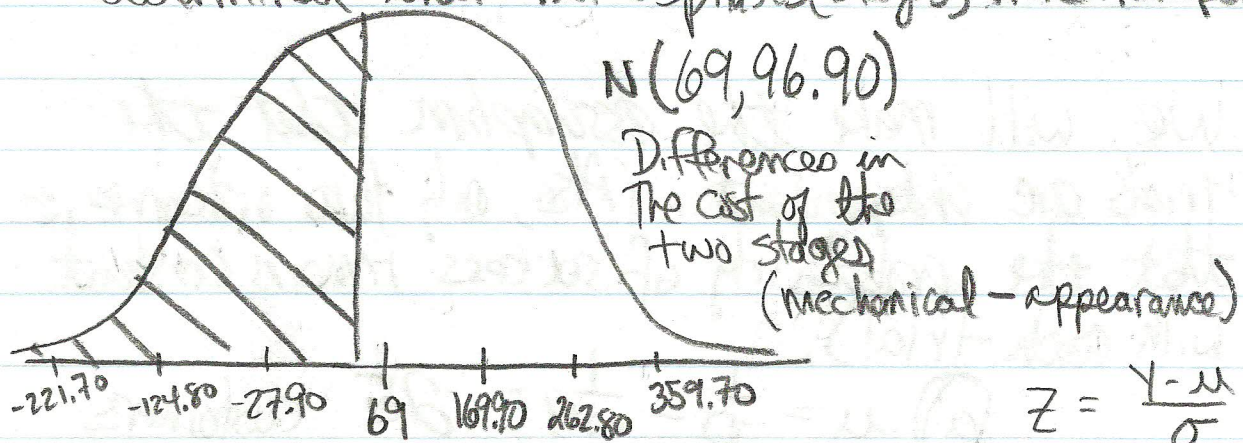 N(69, 96.90)
Differences in
The cost of the
two stages
(mechanical - appearance)
-221.70 -124.80 -27.90 69 169.90 262.80 359.70
Z = y-μ/σ